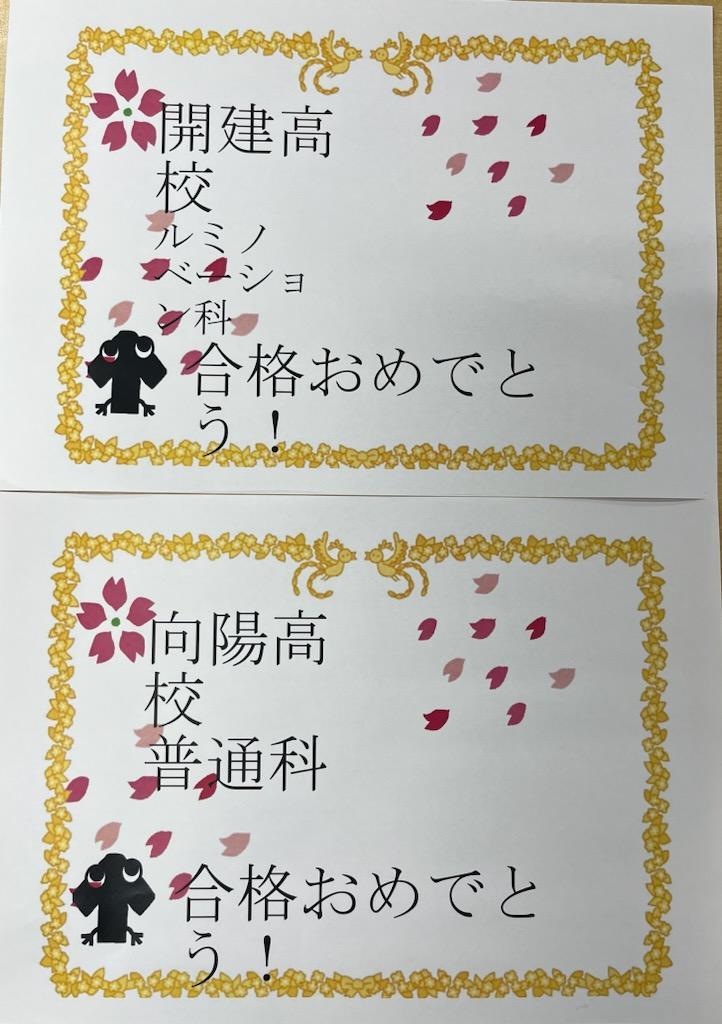 開建高
校
ルミノ
ベーショ
ン科
合格おめでと
う！
向陽高
校
普通科
合格おめでと
う！